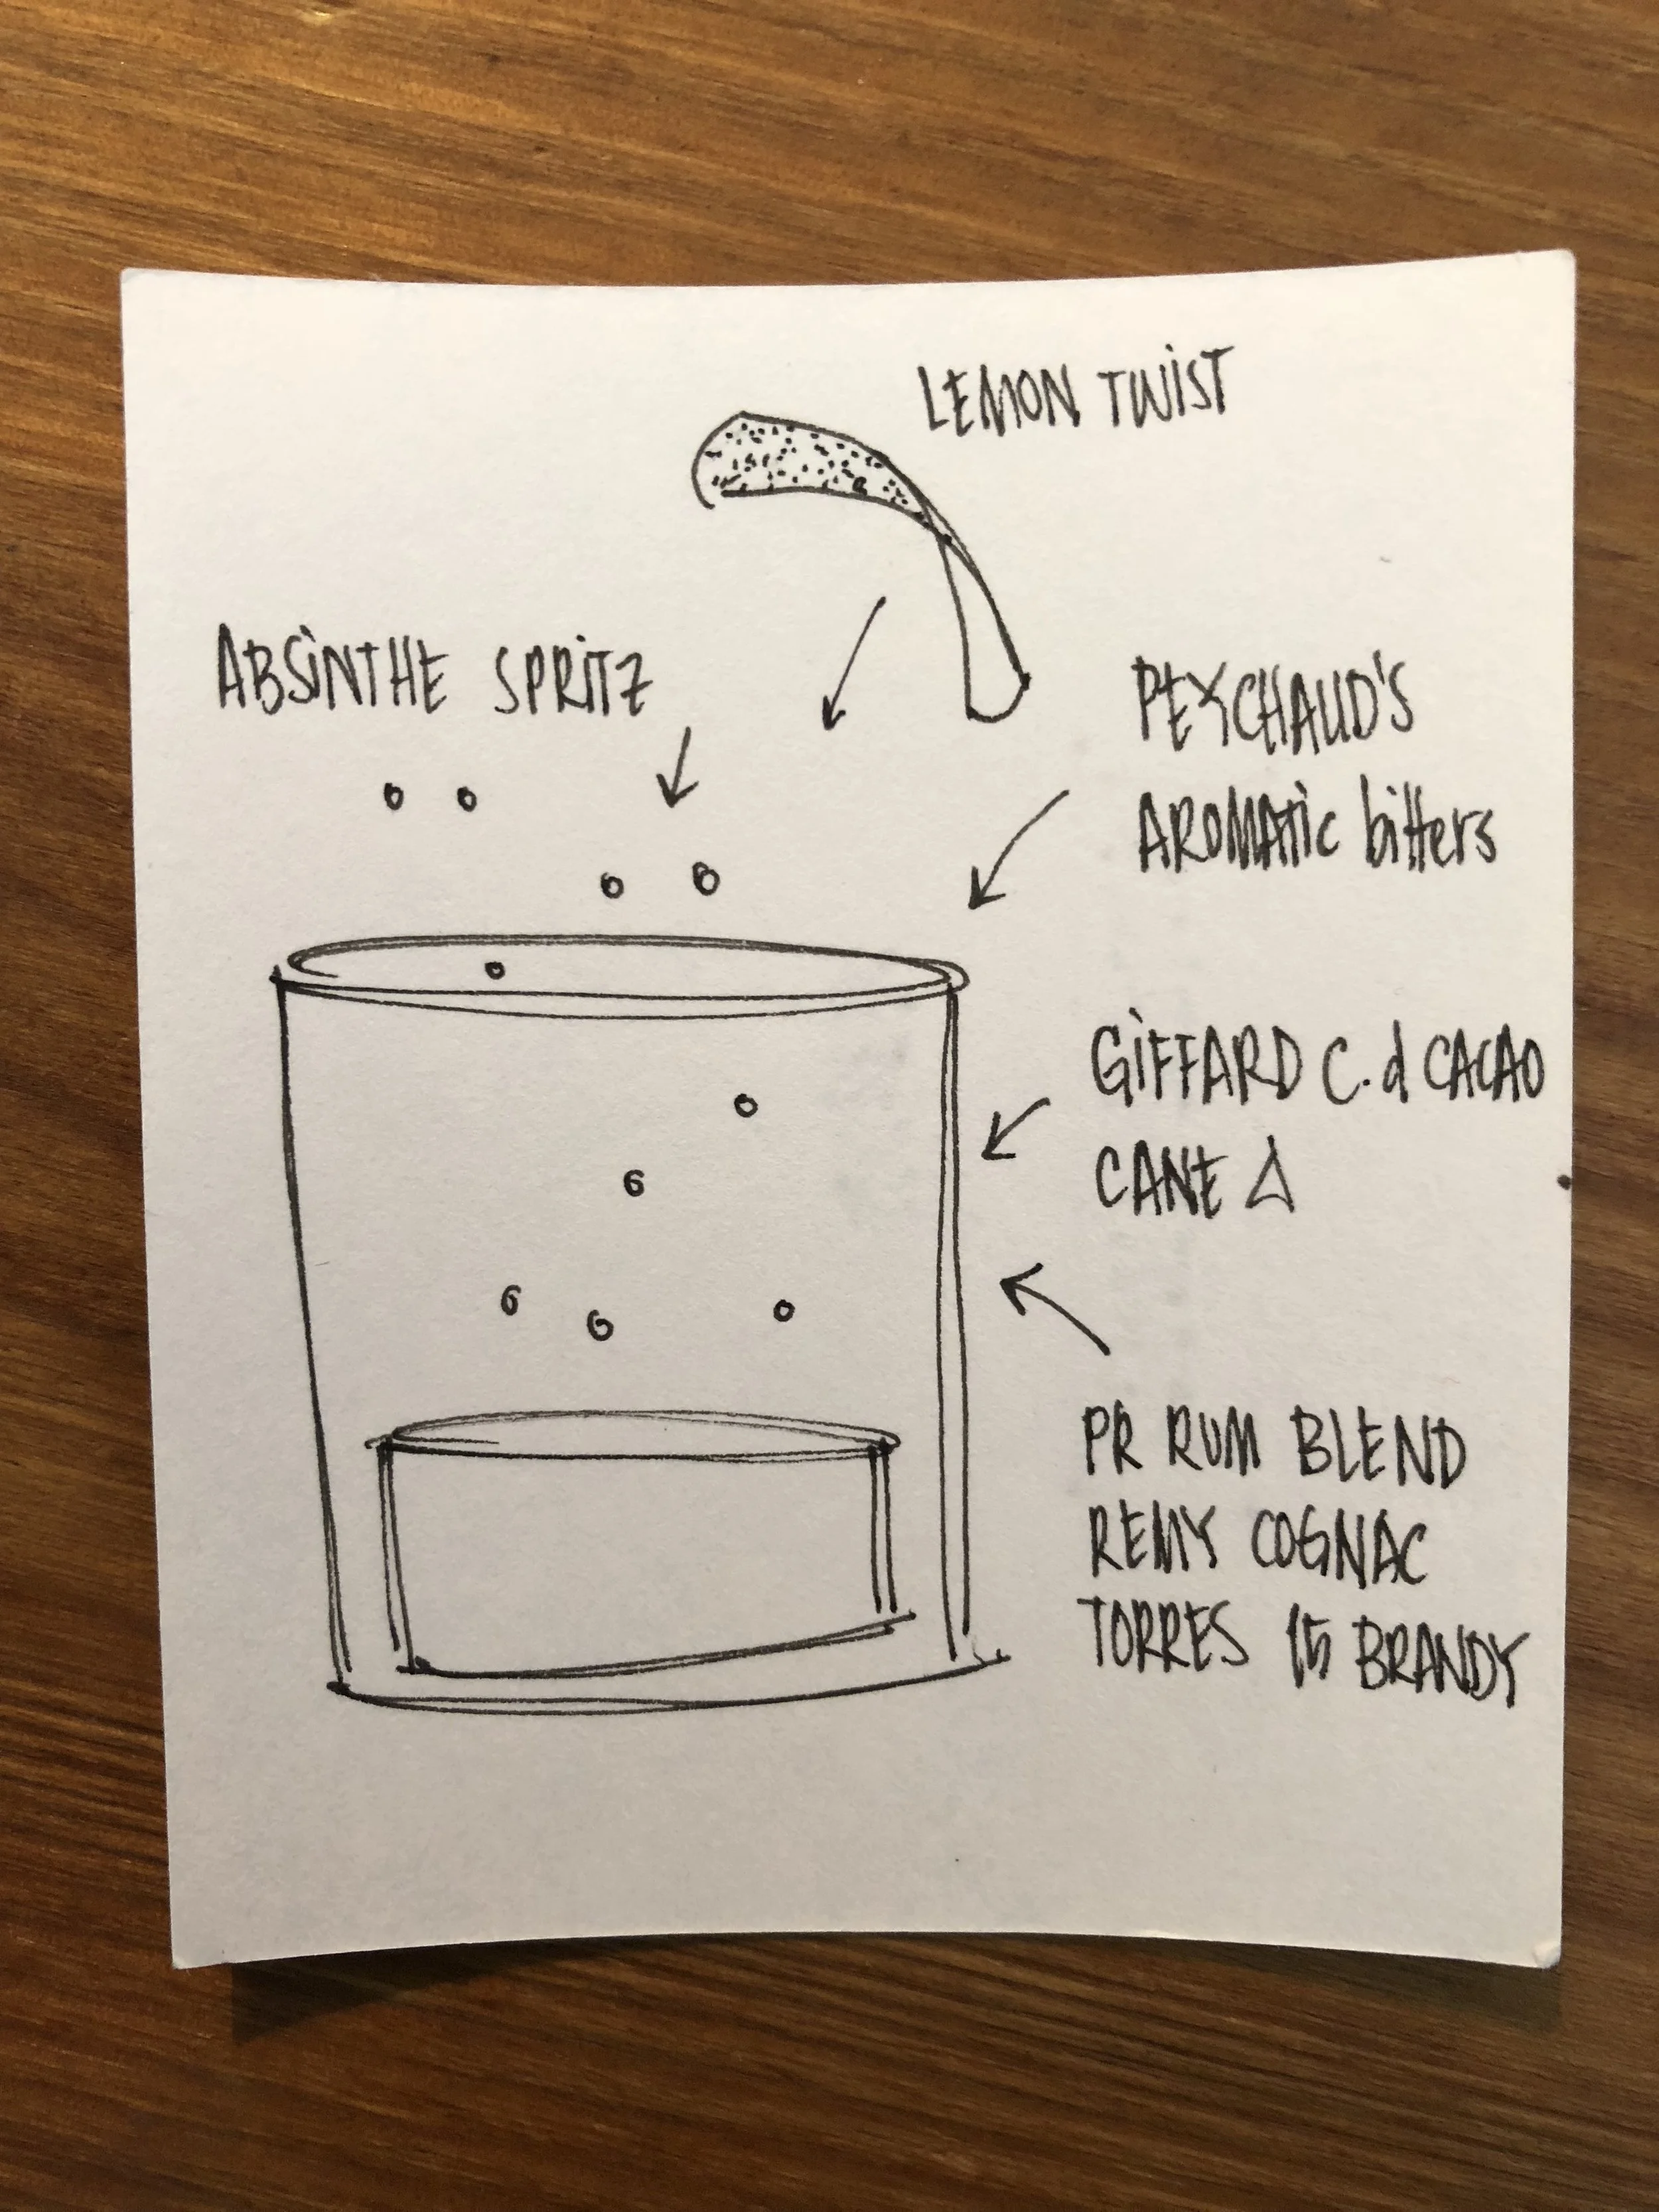 LEMON TWIST
ABSINTHE SPRITZ
PEYCHAUD'S
AROMATIC bitters
GIFFARD C. d CACAO
CANE Δ
PR RUM BLEND
REMY COGNAC
TORRES 15 BRANDY